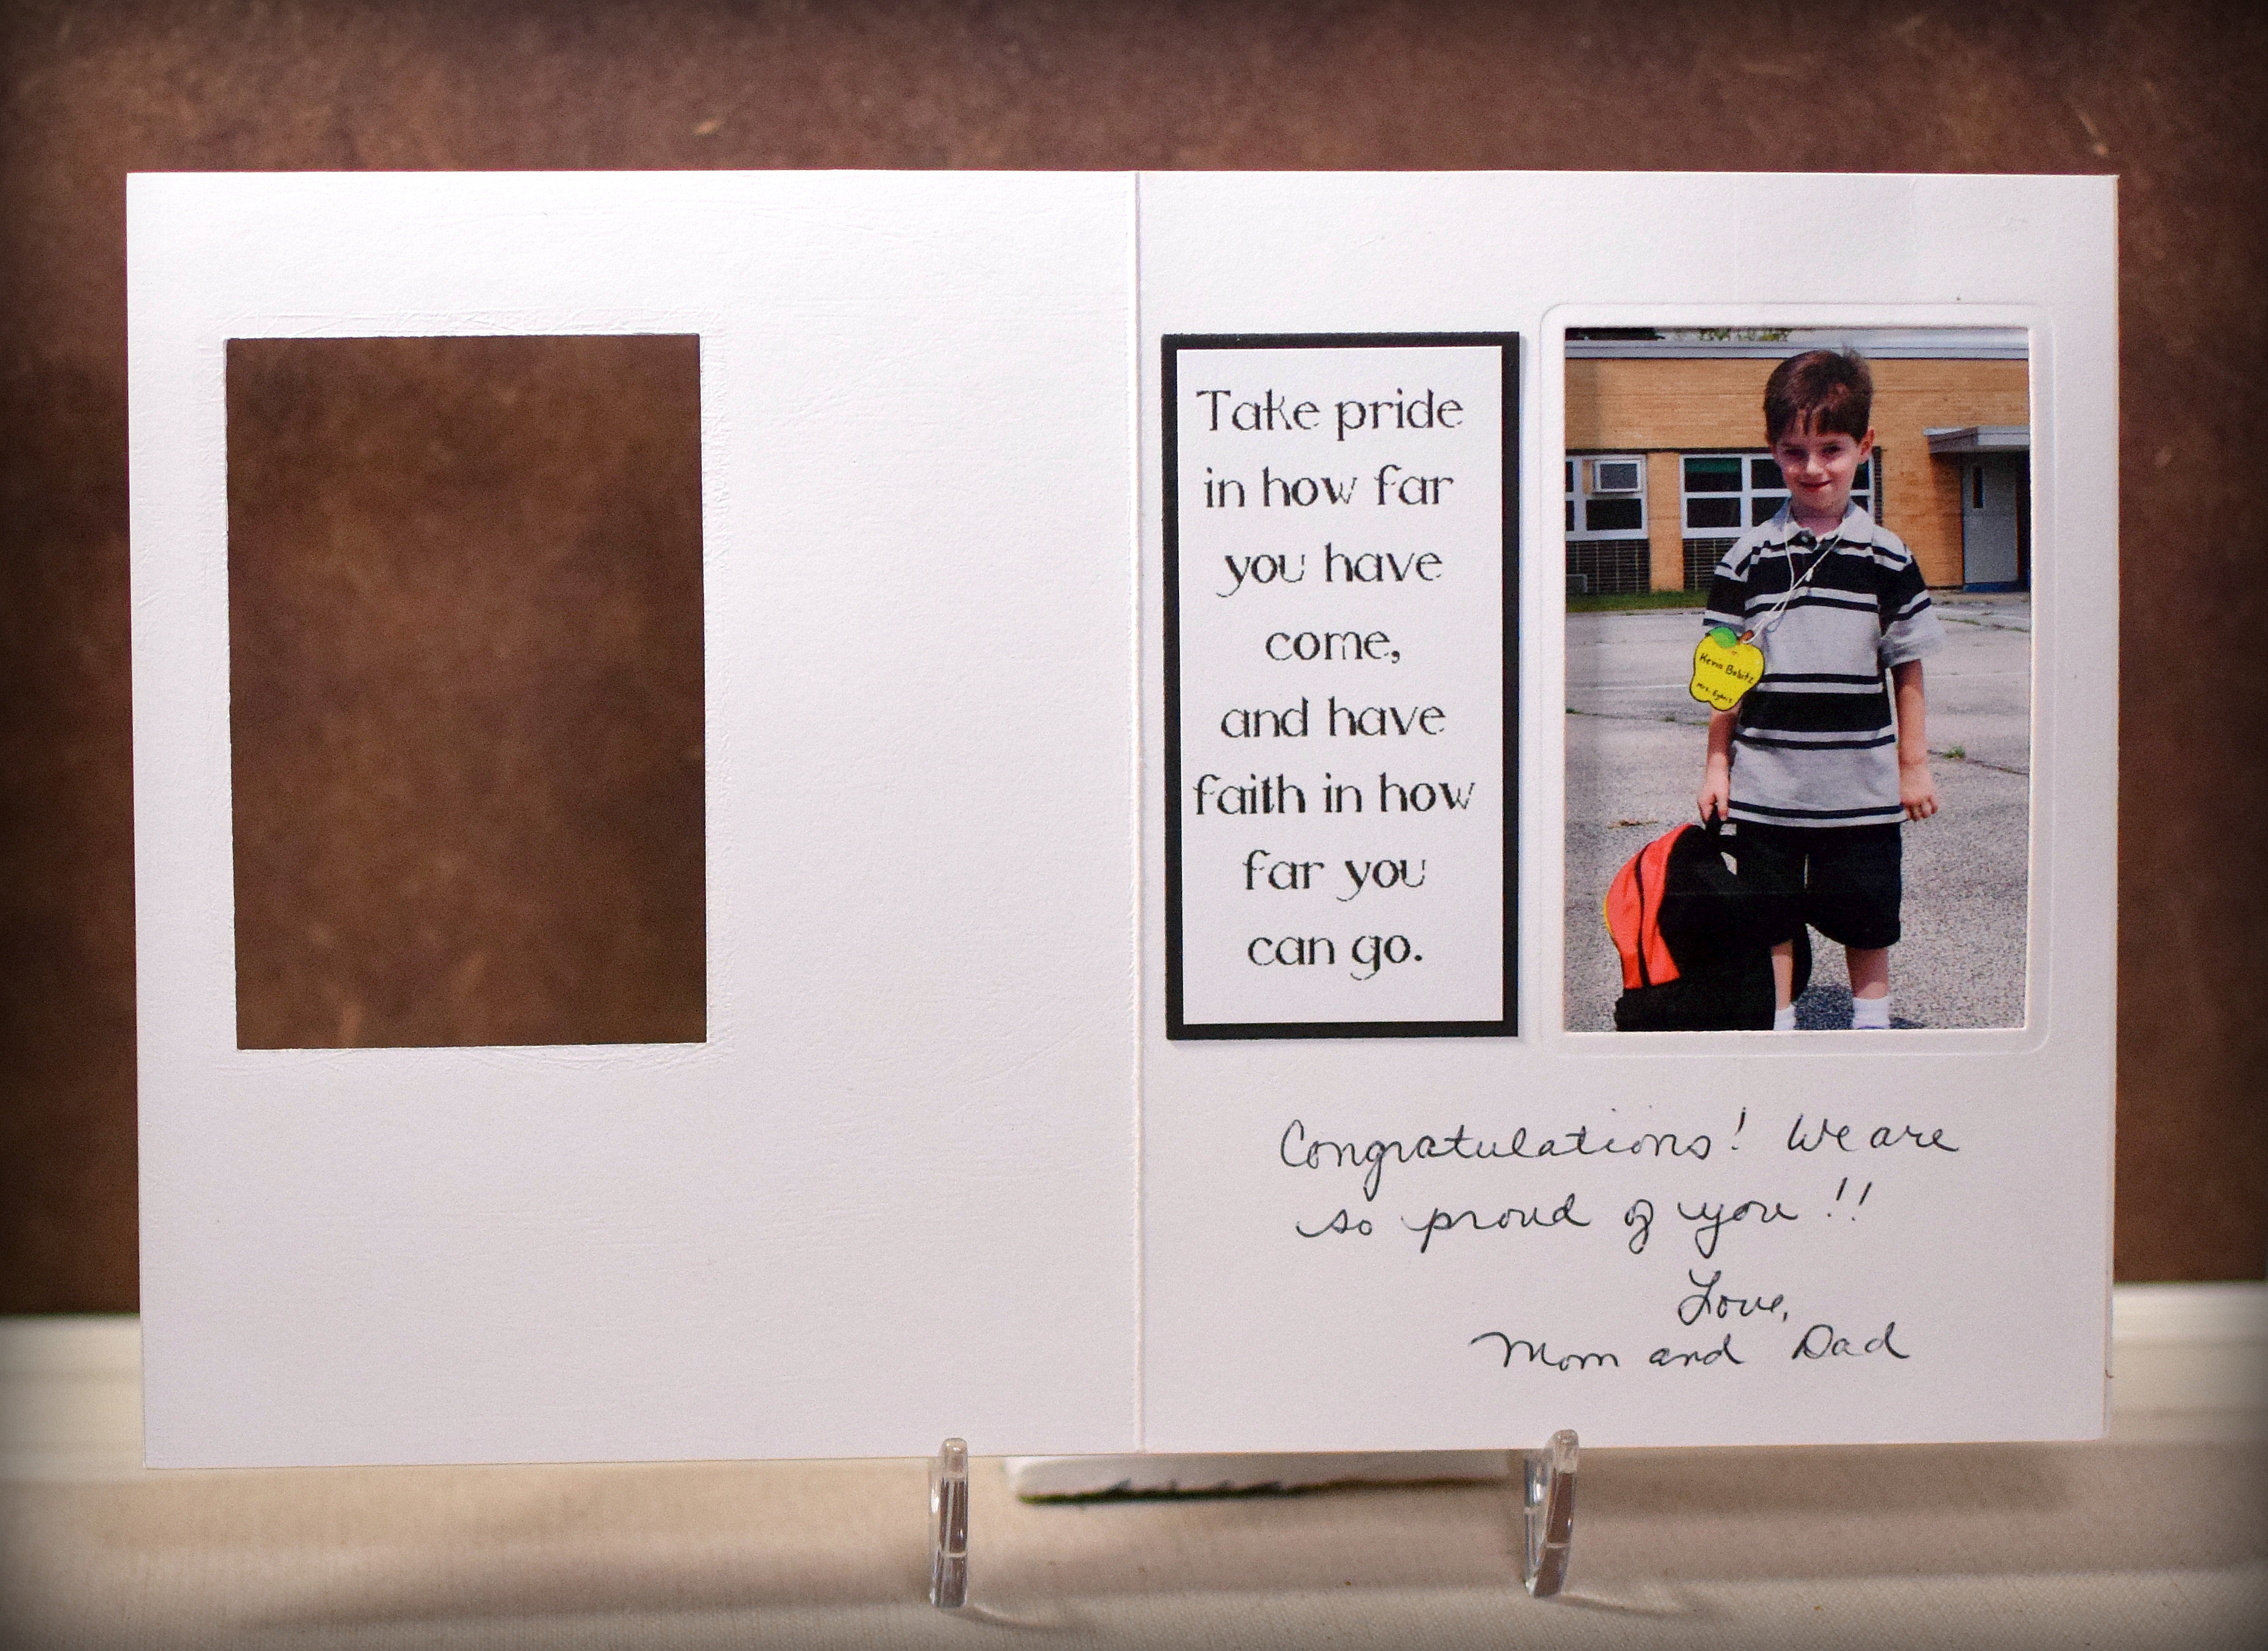 Take pride
in how far
you have
come,
and have
faith in how
far you
can go.
Kevin Bobitz
Mrs.
Congratulations! We are
so proud of you!!
Love,
Mom and Dad